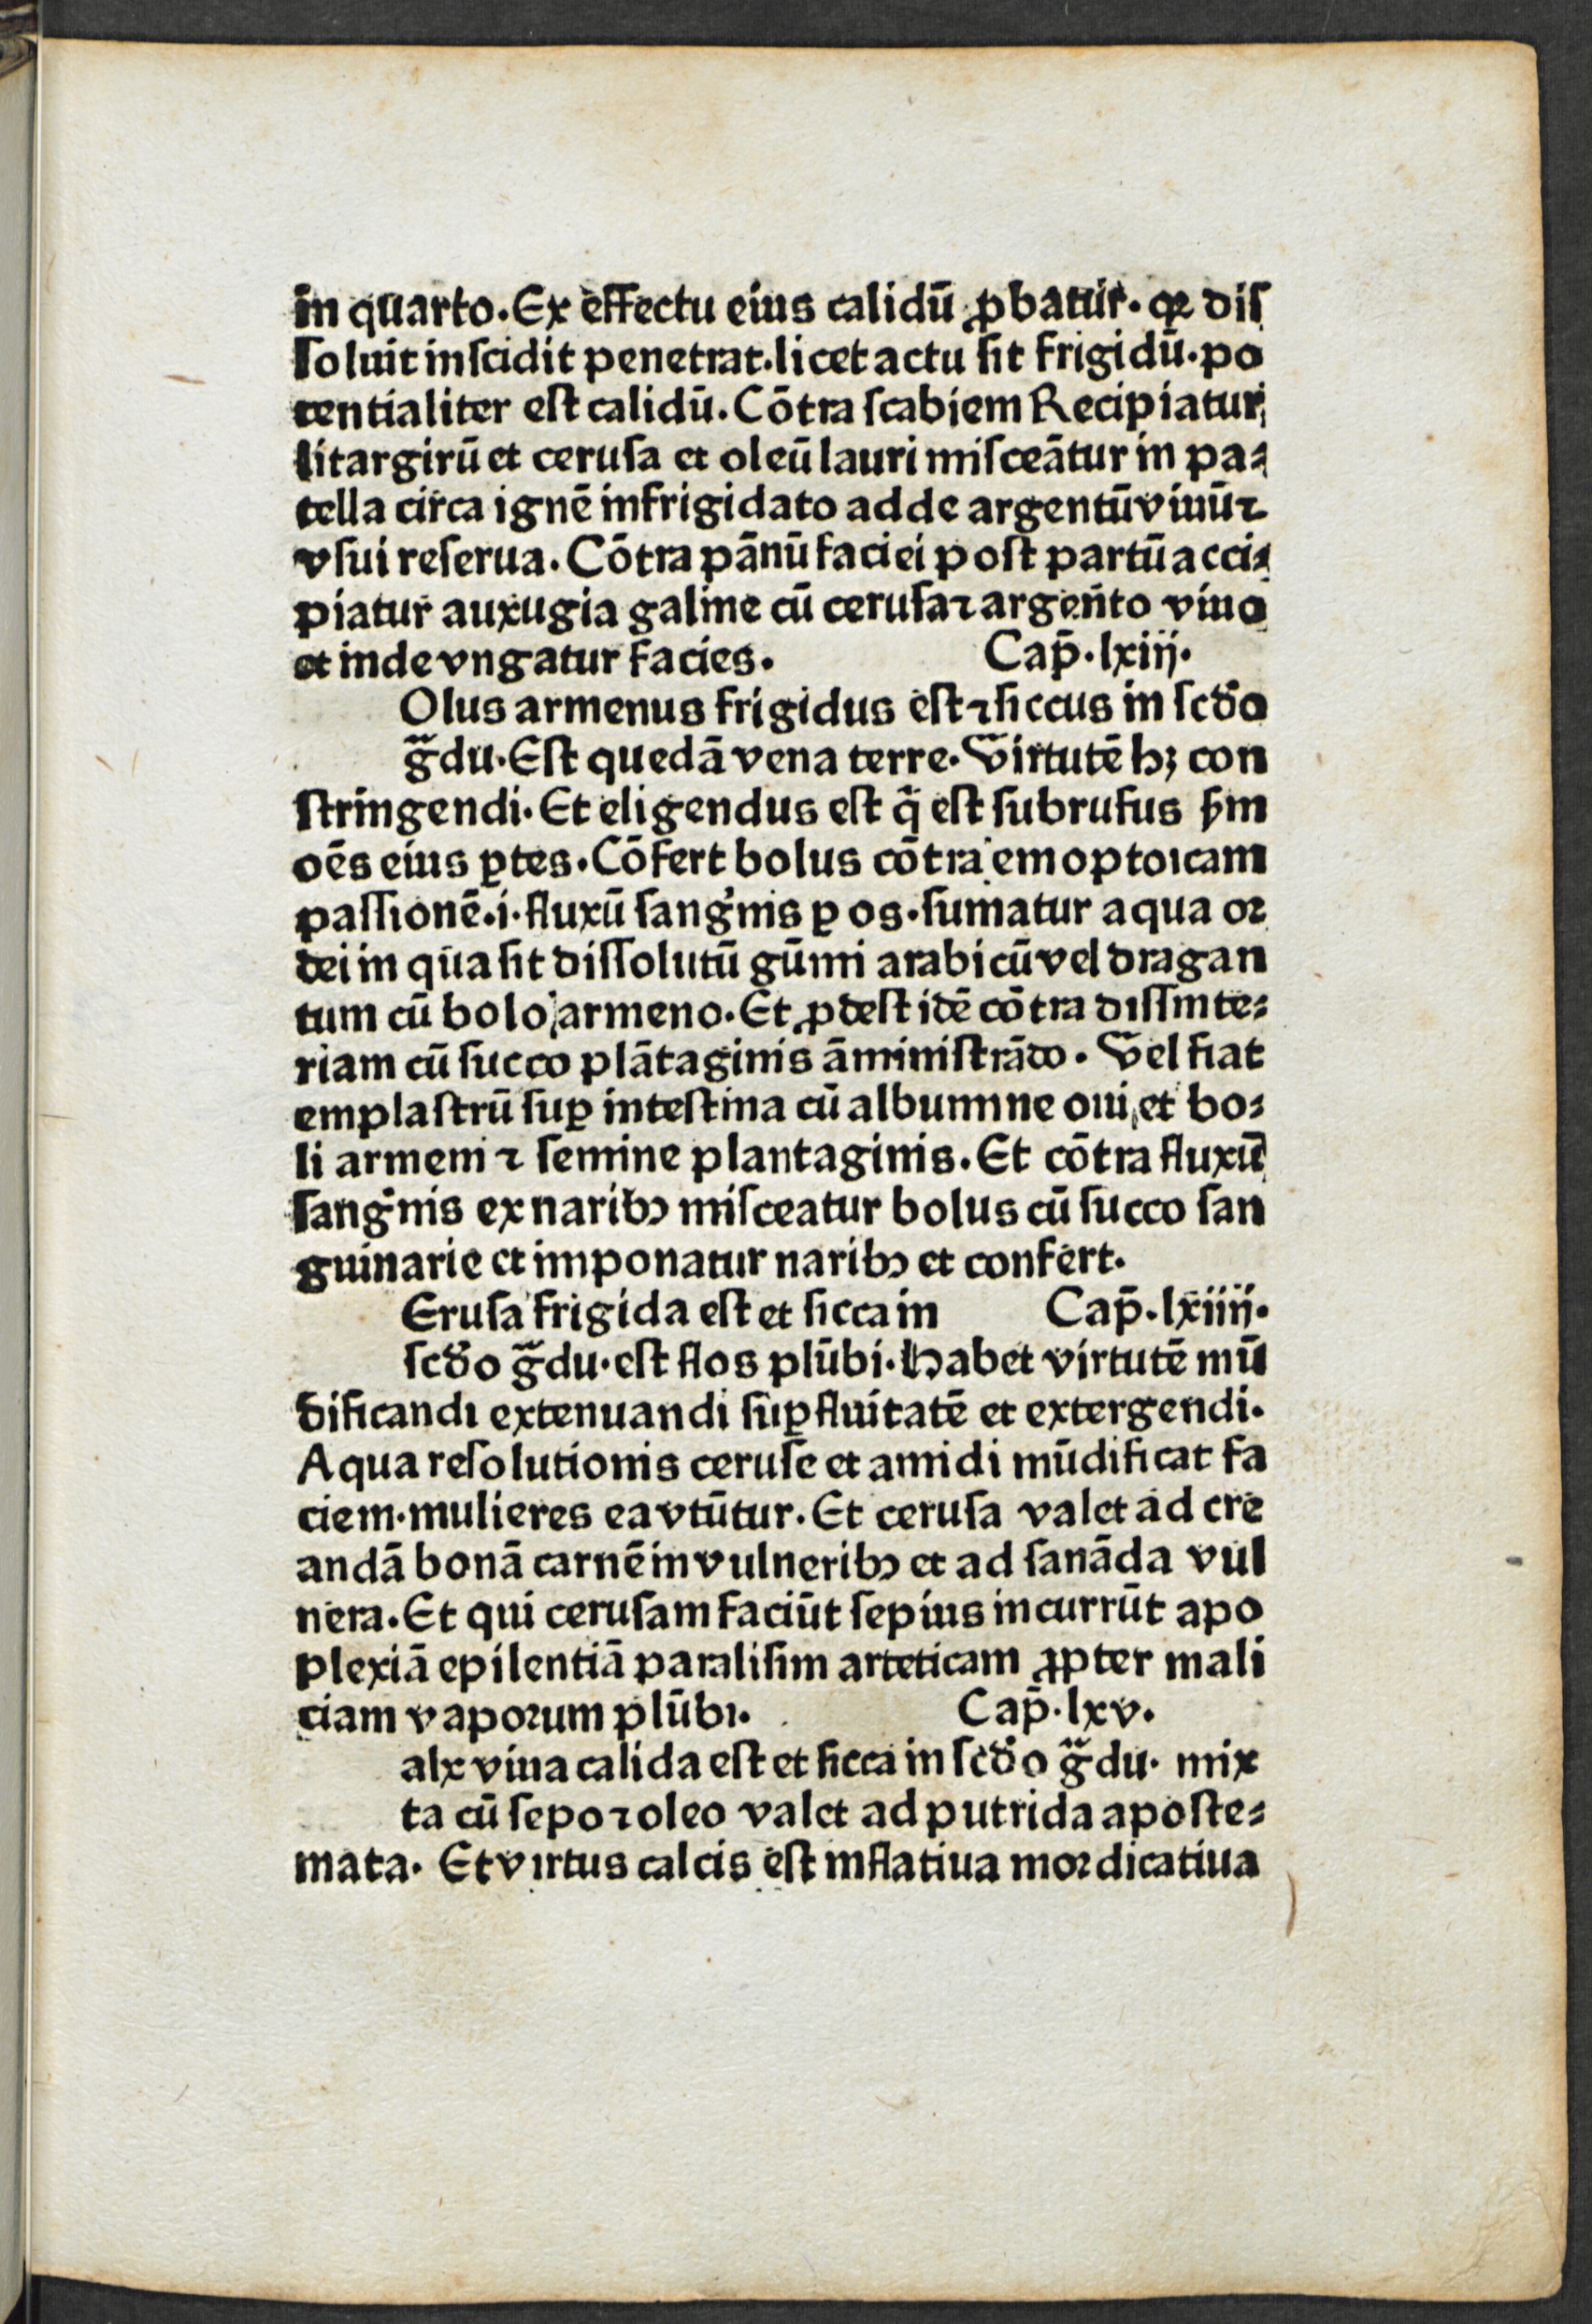 in quarto. Ex effectu eius calidū ꝓbatur. qꝛ diſ
ſoluit inſcidit penetrat. licet actu ſit frigidū. po
tentialiter eſt calidū. Cōtra ſcabiem Recipiatur
litargirū et ceruſa et oleū lauri miſceātur in pa⸗
tella circa ignē infrigidato adde argentū viuū ⁊
vſui reſerua. Cōtra pānū faciei poſt partū acci⸗
piatur auxugia galine cū ceruſa ⁊ argen̄to viuo
et inde vngatur facies. Cap̄. lxiij.
Olus armenus frigidus eſt ⁊ ſiccus in ſcd̓o
g̃du. Eſt quedā vena terre. Virtutē hꝫ con
ſtringendi. Et eligendus eſt q̄ eſt ſubrufus ẜm
oēs eius ꝑtes. Cōfert bolus cōtra emoptoicam
paſſionē. i. fluxū ſangͥnis ꝑ os. ſumatur aqua oꝛ
dei in qua ſit diſſolutū gūmi arabicū vel dragan
tum cū bolo armeno. Et ꝓdeſt idē cōtra diſſinte⸗
riam cū ſucco plātaginis āminiſtrādo. Vel fiat
emplaſtrū ſuꝑ inteſtina cū albumine oui et bo⸗
li armeni ⁊ ſemine plantaginis. Et cōtra fluxū
ſangͥnis ex naribꝰ miſceatur bolus cū ſucco ſan
guinarie et imponatur naribꝰ et confert.
Eruſa frigida eſt et ſicca in Cap̄. lxiiij.
ſcd̓o g̃du. eſt flos plūbi. Habet virtutē mū
dificandi extenuandi ſuꝑfluitatē et extergendi.
Aqua reſolutionis ceruſe et amidi mūdificat fa
ciem. mulieres ea vtūtur. Et ceruſa valet ad cre
andā bonā carnē in vulneribꝰ et ad ſanāda vul
nera. Et qui ceruſam faciūt ſepius incurrūt apo
plexiā epilentiā paraliſim arteticam ꝓpter mali
ciam vapoꝛum plūbi. Cap̄. lxv.
alx viua calida eſt et ſicca in ſcd̓o g̃du. mix
ta cū ſepo ⁊ oleo valet ad putrida apoſte⸗
mata. Et virtus calcis eſt inflatiua moꝛdicatiua